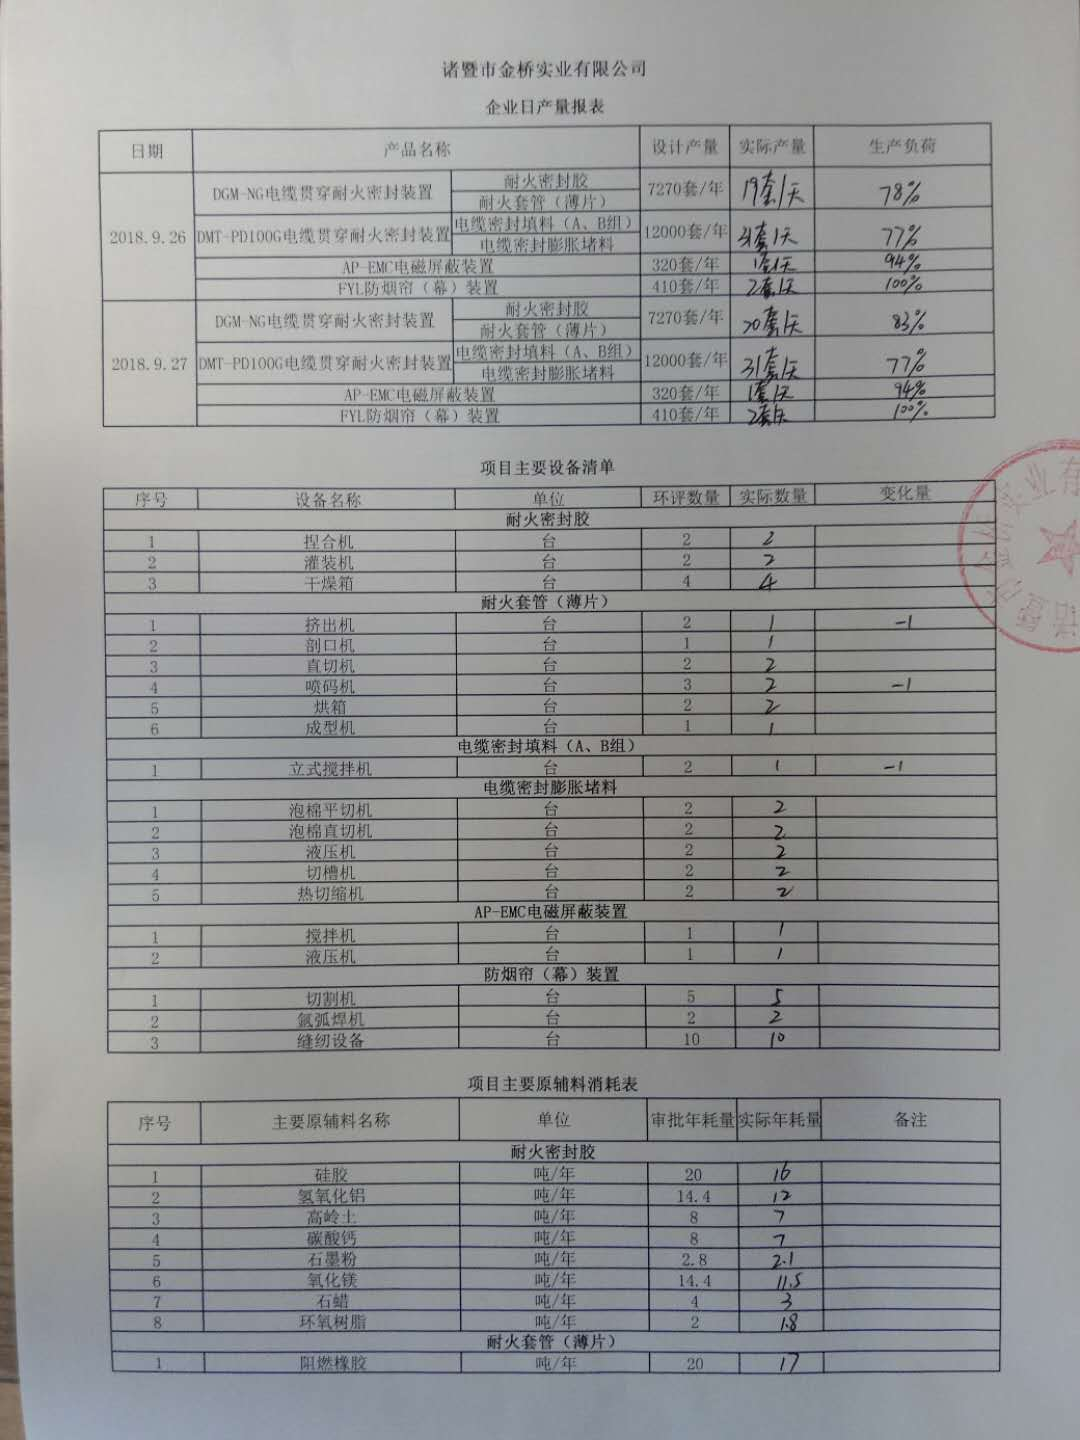 诸暨市金桥实业有限公司
企业日产量报表
日期 产品名称 设计产量 实际产量 生产负荷
2018.9.26 DGM-NG电缆贯穿耐火密封装置 耐火密封胶 7270套/年 19套/天 78%
耐火套管（薄片）
DMT-PD100G电缆贯穿耐火密封装置 电缆密封填料（A、B组） 12000套/年 31套/天 77%
电缆密封膨胀堵料
AP-EMC电磁屏蔽装置 320套/年 1套/天 94%
FYL防烟帘（幕）装置 410套/年 2套/天 100%
2018.9.27 DGM-NG电缆贯穿耐火密封装置 耐火密封胶 7270套/年 20套/天 83%
耐火套管（薄片）
DMT-PD100G电缆贯穿耐火密封装置 电缆密封填料（A、B组） 12000套/年 31套/天 77%
电缆密封膨胀堵料
AP-EMC电磁屏蔽装置 320套/年 1套/天 94%
FYL防烟帘（幕）装置 410套/年 2套/天 100%
项目主要设备清单
序号 设备名称 单位 环评数量 实际数量 变化量
耐火密封胶
1 捏合机 台 2 2
2 灌装机 台 2 2
3 干燥箱 台 4 4
耐火套管（薄片）
1 挤出机 台 2 1 -1
2 剖口机 台 1 1
3 直切机 台 2 2
4 喷码机 台 3 2 -1
5 烘箱 台 2 2
6 成型机 台 1 1
电缆密封填料（A、B组）
1 立式搅拌机 台 2 1 -1
电缆密封膨胀堵料
1 泡棉平切机 台 2 2
2 泡棉直切机 台 2 2
3 液压机 台 2 2
4 切槽机 台 2 2
5 热切缩机 台 2 2
AP-EMC电磁屏蔽装置
1 搅拌机 台 1 1
2 液压机 台 1 1
防烟帘（幕）装置
1 切割机 台 5 5
2 氩弧焊机 台 2 2
3 缝纫设备 台 10 10
项目主要原辅料消耗表
序号 主要原辅料名称 单位 审批年耗量 实际年耗量 备注
耐火密封胶
1 硅胶 吨/年 20 16
2 氢氧化铝 吨/年 14.4 12
3 高岭土 吨/年 8 7
4 碳酸钙 吨/年 8 7
5 石墨粉 吨/年 2.8 2.1
6 氧化镁 吨/年 14.4 11.5
7 石蜡 吨/年 4 3
8 环氧树脂 吨/年 2 1.8
耐火套管（薄片）
1 阻燃橡胶 吨/年 20 17